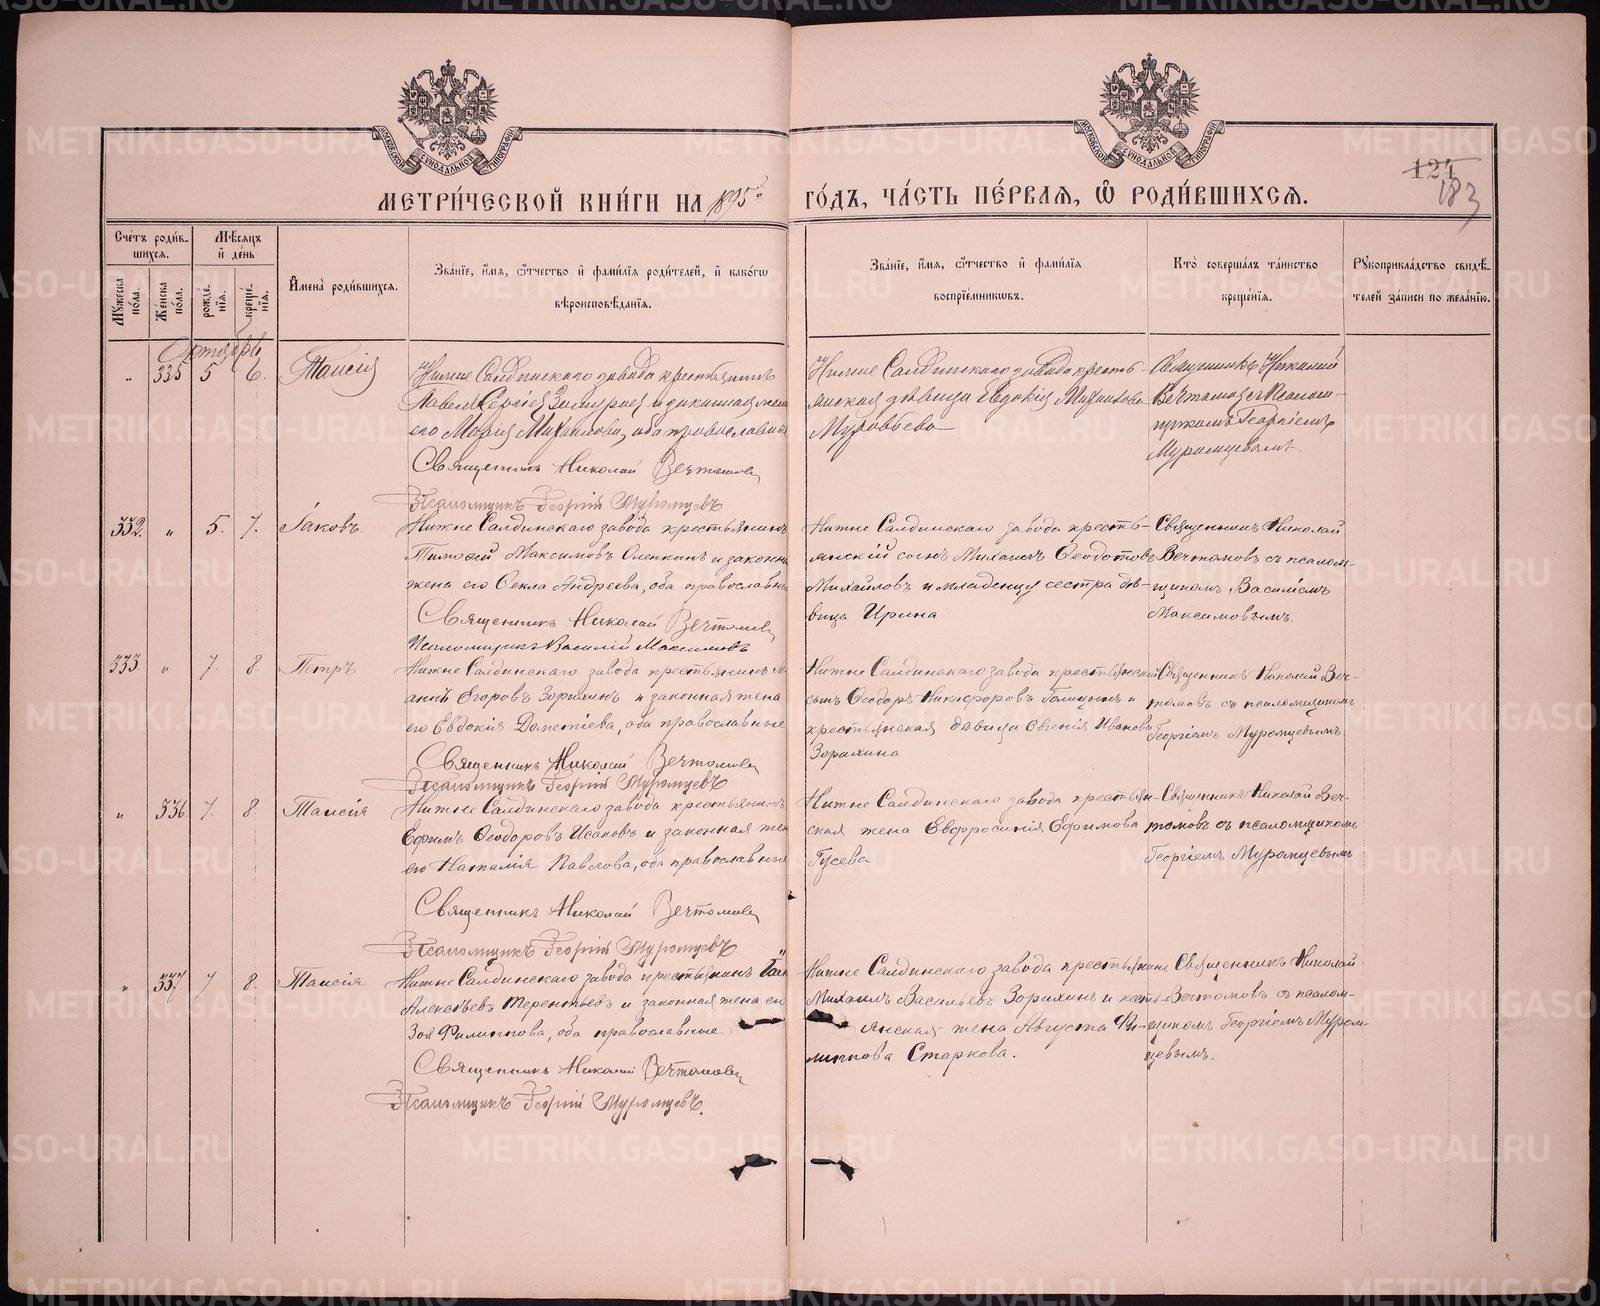 МОСКОВСКОЙ СѴНОДАЛЬНОЙ ТИПОГРАФІИ
МОСКОВСКОЙ СѴНОДАЛЬНОЙ ТИПОГРАФІИ
124
183
МЕТРИ́ЧЕСКОЙ КНИ́ГИ НА 1895й ГО́ДЪ, ЧА́СТЬ ПЕ́РВАЯ, Ѡ҆ РОДИ́ВШИХСЯ.
Сче́тъ роди́вшихся.
Мꙋ́жеска по́ла.
Же́нска по́ла.
Мѣ́сяцъ и҆ де́нь
рожде́нїя.
креще́нїя.
И҆мена̀ роди́вшихся.
Зва́нїе, и҆́мя, ѻ҆́тчество и҆ фами́лїя роди́телей, и҆ како́гѡ
вѣроисповѣ́данїя.
Зва́нїе, и҆́мя, ѻ҆́тчество и҆ фами́лїя
воспрїе́мникѡвъ.
Кто̀ соверша́лъ та́инство
креще́нїя.
Рꙋкоприкла́дство свидѣ́-
телей за́писи по жела́нїю.
Октябрь
„ 335 5 6. Таисія
Нижне Салдинскаго завода крестьянинъ
Павелъ Сергіев и законная жена
его Марія Михаилова, оба православные
Священникъ Николай Вечтомовъ
Псаломщикъ Георгій Муромцевъ
Нижне Салдинскаго завода кресть-
янская дѣвица Евдокія Михаилова
Муравьева
Священникъ Николай
Вечтомовъ с псалом-
щикомъ Георгіемъ
Муромцевымъ.
332. „ 5. 7. Іаковъ.
Нижне Салдинскаго завода крестьянинъ
Тимоѳей Максимовъ Оленкинъ и законная
жена его Ѳекла Андреева, оба православные
Священникъ Николай Вечтомовъ
Псаломщикъ Василій Максимовъ
Нижне Салдинскаго завода кресть-
янскій сынъ Михаилъ Ѳеодотовъ
Михайловъ и младенцу сестра дѣ-
вица Ирина
Священникъ Николай
Вечтомовъ съ псалом-
щикомъ Василіемъ
Максимовымъ.
333 „ 7. 8. Петръ
Нижне Салдинскаго завода крестьянинъ Іо-
аннъ Егоровъ Зорихинъ и законная жена
его Евдокія Дометіева, оба православные
Священникъ Николай Вечтомовъ
Псаломщикъ Георгій Муромцевъ
Нижне Салдинскаго завода крестьянскій
сынъ Ѳеодоръ Никифоровъ и
крестьянская дѣвица Евгенія Иванова
Зорихина
Священникъ Николай Веч-
томовъ съ псаломщикомъ
Георгіемъ Муромцевымъ
„ 336. 7. 8. Таисія
Нижне Салдинскаго завода крестьянинъ
Ефимъ Ѳеодоровъ Исаковъ и законная жена
его Наталія Павлова, оба православные
Священникъ Николай Вечтомовъ
Псаломщикъ Георгій Муромцевъ
Нижне Салдинскаго завода крестьян-
ская жена Евфросинія Ефимова
Гусева
Священникъ Николай Веч-
томовъ съ псаломщикомъ
Георгіемъ Муромцевымъ
„ 337 7 8. Таисія
Нижне Салдинскаго завода крестьянинъ
Алексѣевъ Терентьевъ и законная жена его
Зоя Филиппова, оба православные
Священникъ Николай Вечтомовъ
Псаломщикъ Георгій Муромцевъ.
Нижне Салдинскаго завода крестьянинъ
Михаилъ Васильевъ Зорихинъ и кресть-
янская жена Августа Фи-
липпова Старкова.
Священникъ Николай
Вечтомовъ съ псалом-
щикомъ Георгіемъ Муром-
цевымъ.
METRIKI.GASO-URAL.RU